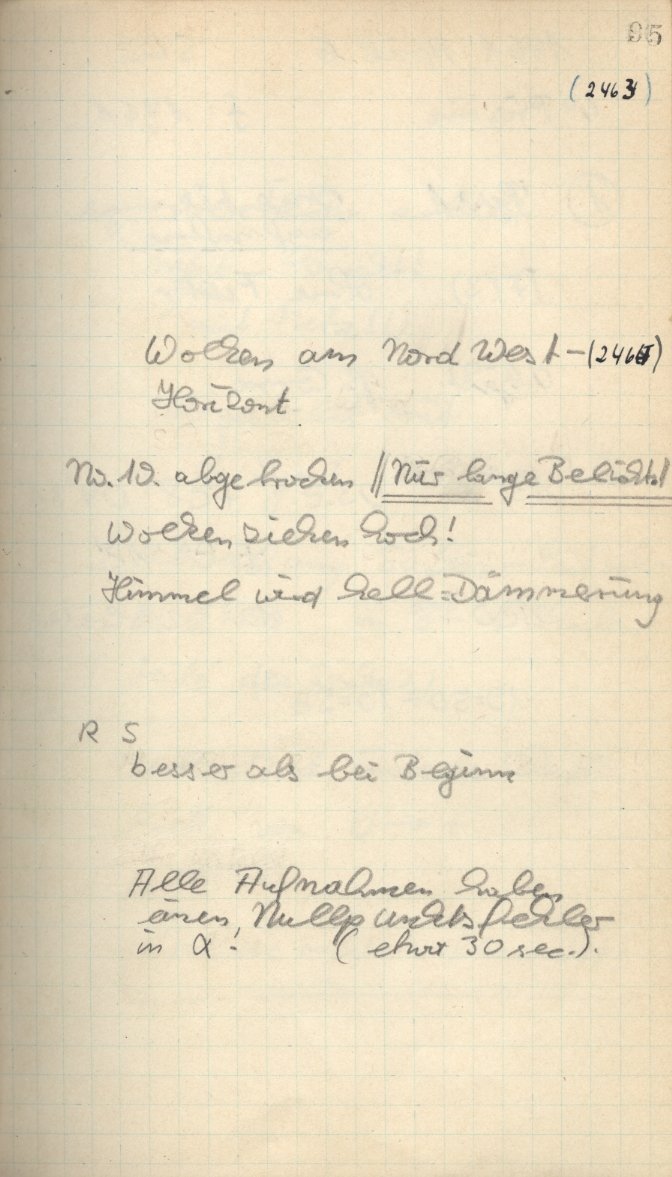 95
(2463)
Wolken am Nord West-(246)
Horizont
No. 10. abgebrochen || Nur lange Belicht.!
Wolken ziehen hoch!
Himmel wird hell = Dämmerung
R S
besser als bei Beginn
Alle Aufnahmen haben
einen Nullpunktsfehler
in α! (etwa 30 sec.).